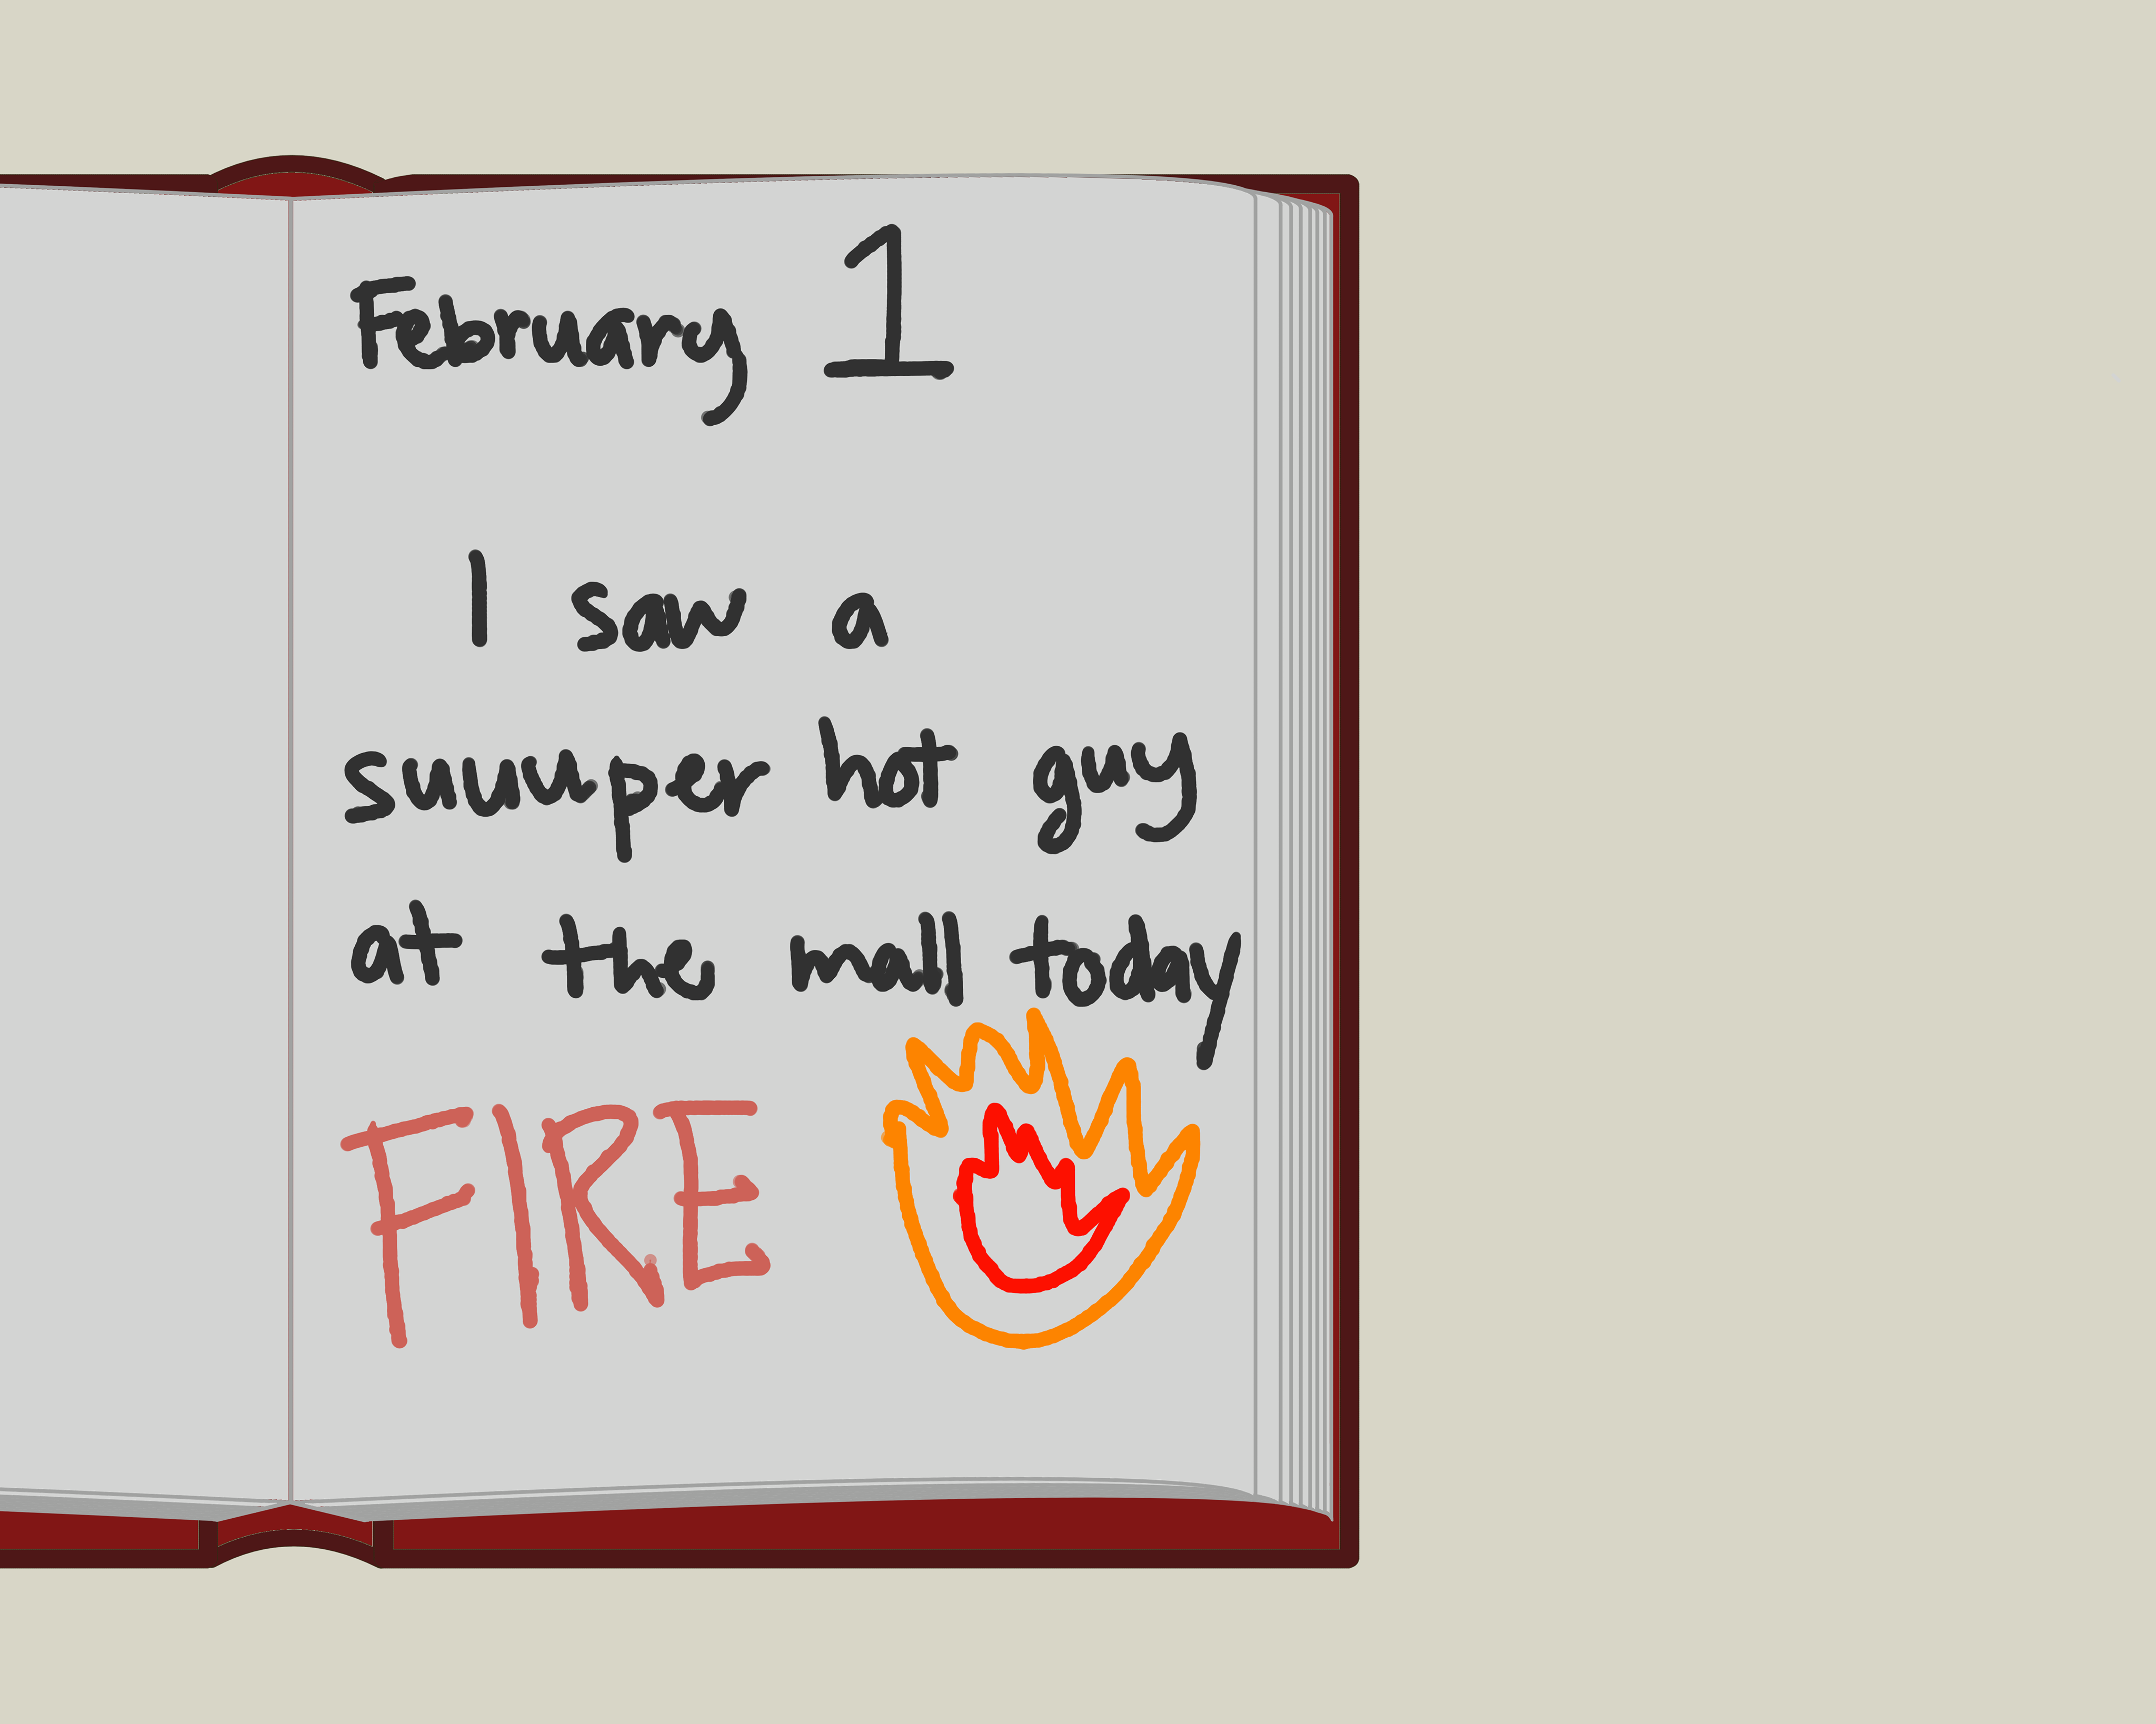 February 1
I saw a
suuuper hot guy
at the mall today
FIRE